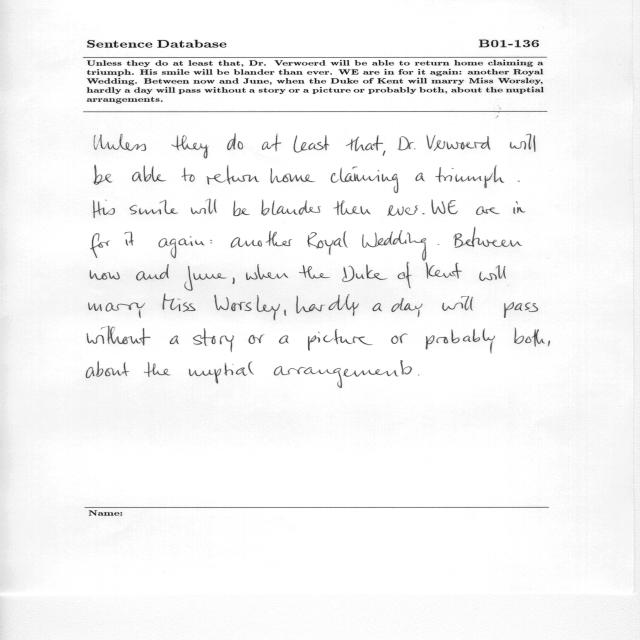 Sentence Database B01-136
Unless they do at least that, Dr. Verwoerd will be able to return home claiming a
triumph. His smile will be blander than ever. WE are in for it again: another Royal
Wedding. Between now and June, when the Duke of Kent will marry Miss Worsley,
hardly a day will pass without a story or a picture or probably both, about the nuptial
arrangements.
Unless they do at least that, Dr. Verwoerd will
be able to return home claiming a triumph.
His smile will be blander then ever. WE are in
for it again: another Royal Wedding. Between
now and June, when the Duke of Kent will
marry Miss Worsley, hardly a day will pass
without a story or a picture or probably both,
about the nuptial arrangements.
Name: